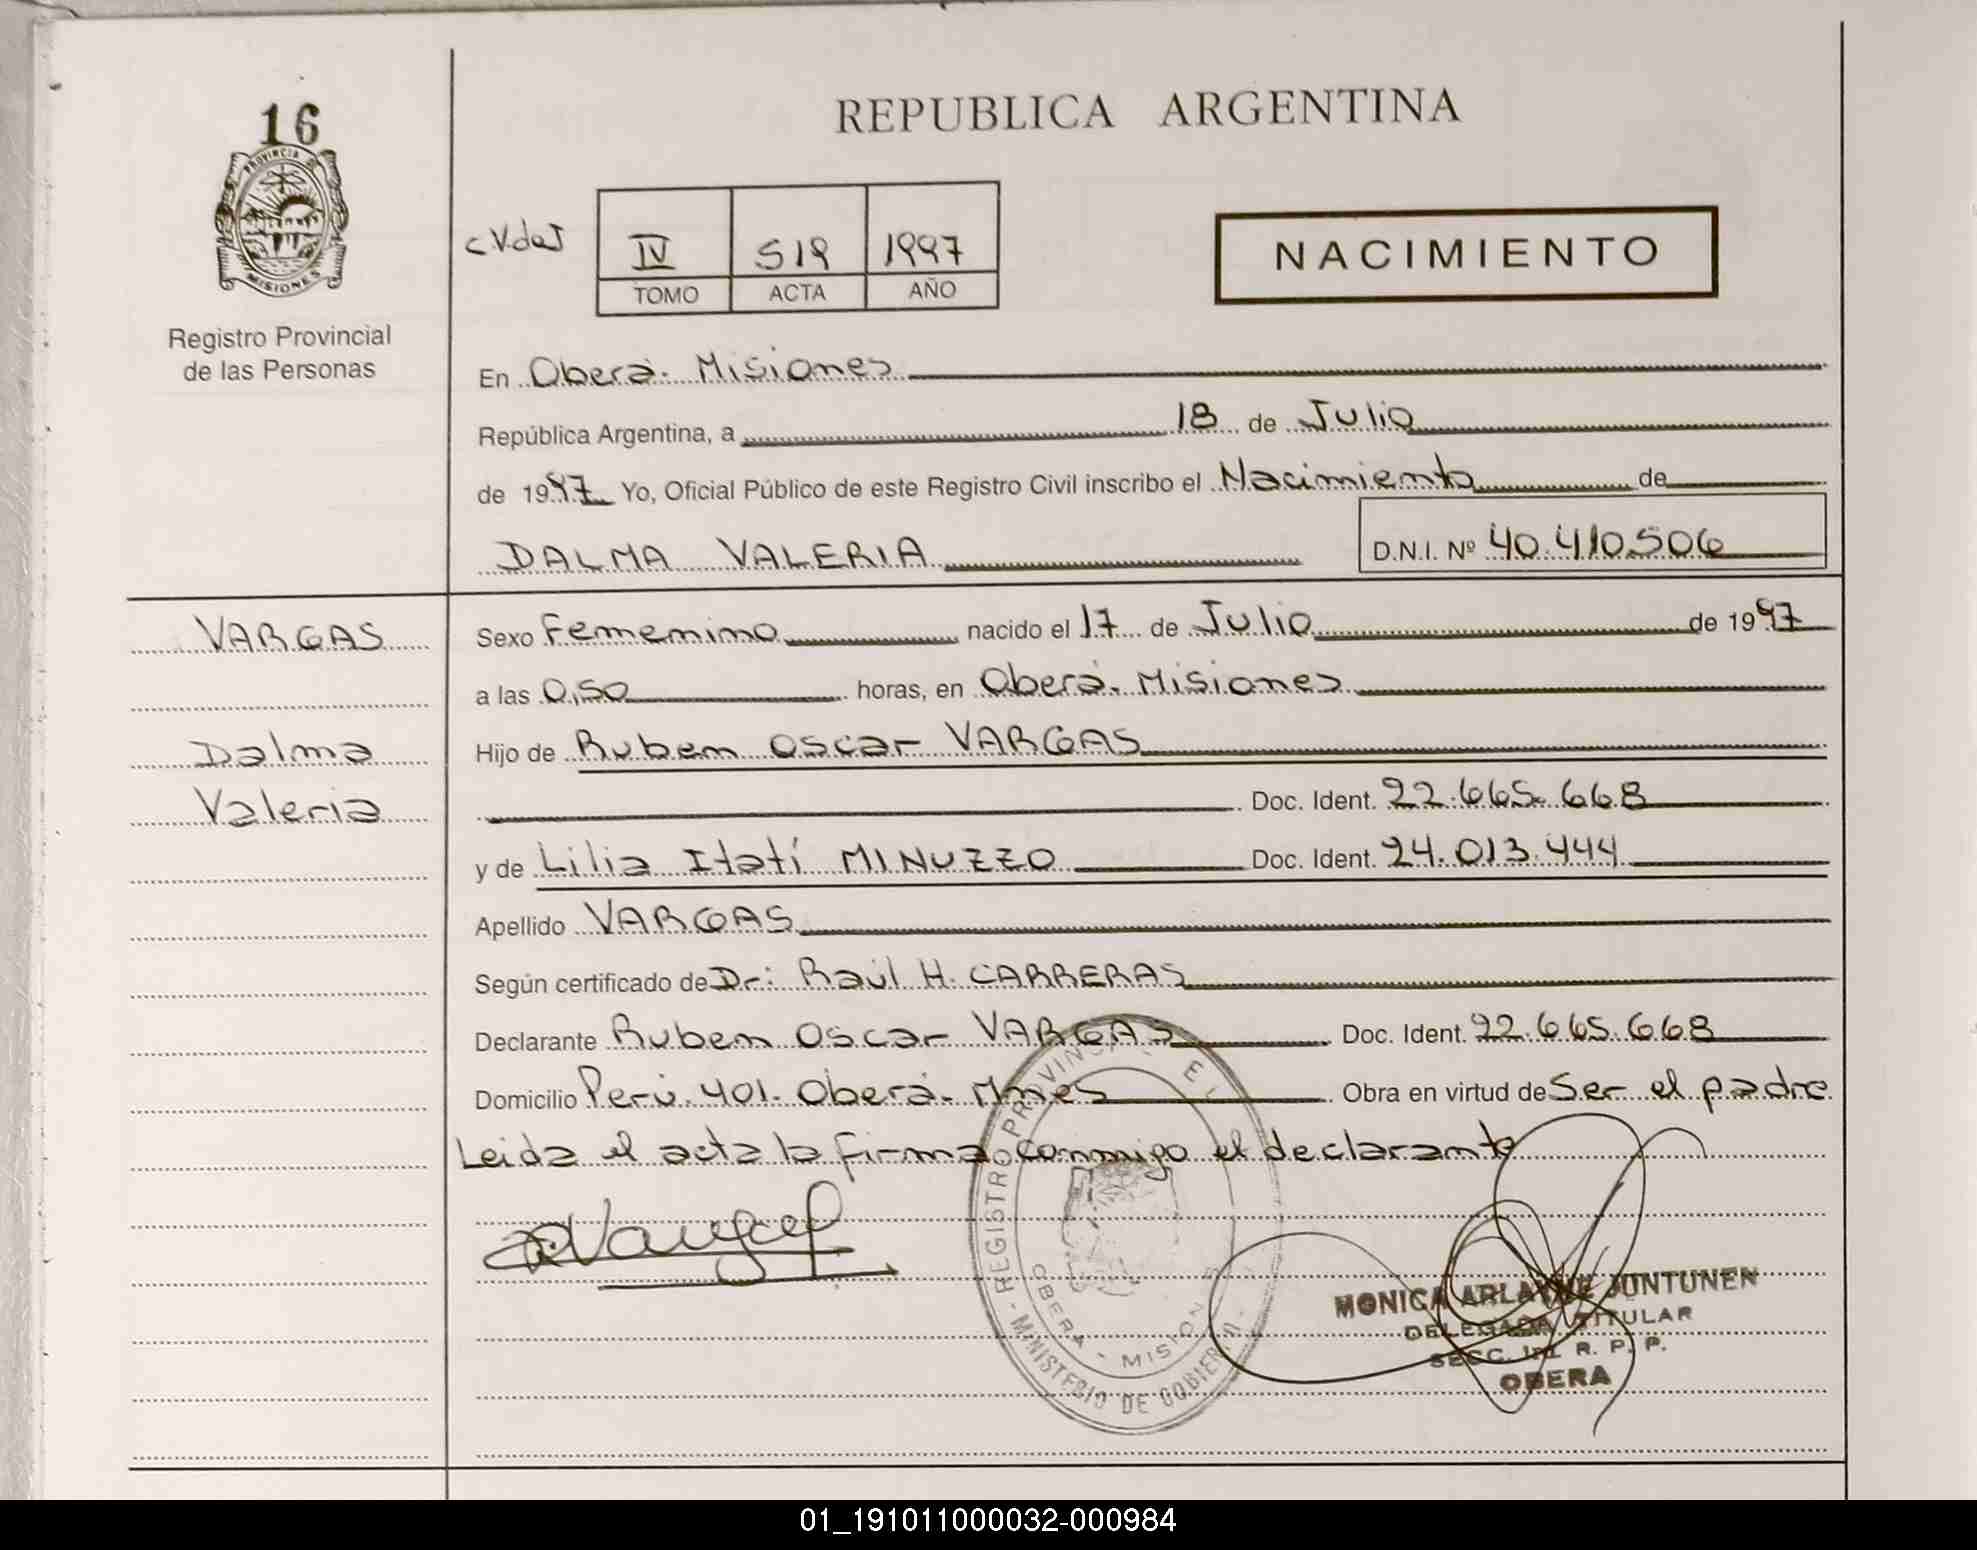 16
PROVINCIA DE
MISIONES
Registro Provincial
de las Personas
REPUBLICA ARGENTINA
IV 519 1997
TOMO ACTA AÑO
NACIMIENTO
En Oberá. Misiones
República Argentina, a 18 de Julio
de 1997 Yo, Oficial Público de este Registro Civil inscribo el Nacimiento de
DALMA VALERIA D.N.I. Nº 40.410.506
VARGAS
Dalma
Valeria
Sexo Femenino nacido el 17 de Julio de 1997
a las 0,50 horas, en Oberá. Misiones
Hijo de Ruben Oscar VARGAS
Doc. Ident. 22.665.668
y de Lilia Itatí MINUZZO Doc. Ident. 24.013.444
Apellido VARGAS
Según certificado de Dr: Raúl H. CARRERAS
Declarante Ruben Oscar VARGAS Doc. Ident. 22.665.668
Domicilio Perú 401. Oberá. Mnes Obra en virtud de Ser el padre
Leida el acta la firma conmigo el declarante
REGISTRO PROVINCIAL
MINISTERIO DE GOBIERNO
OBERA - MISIONES
MONICA ARLAYNE JUNTUNEN
DELEGADA TITULAR
SECC. R. P. P.
OBERA
01_191011000032-000984